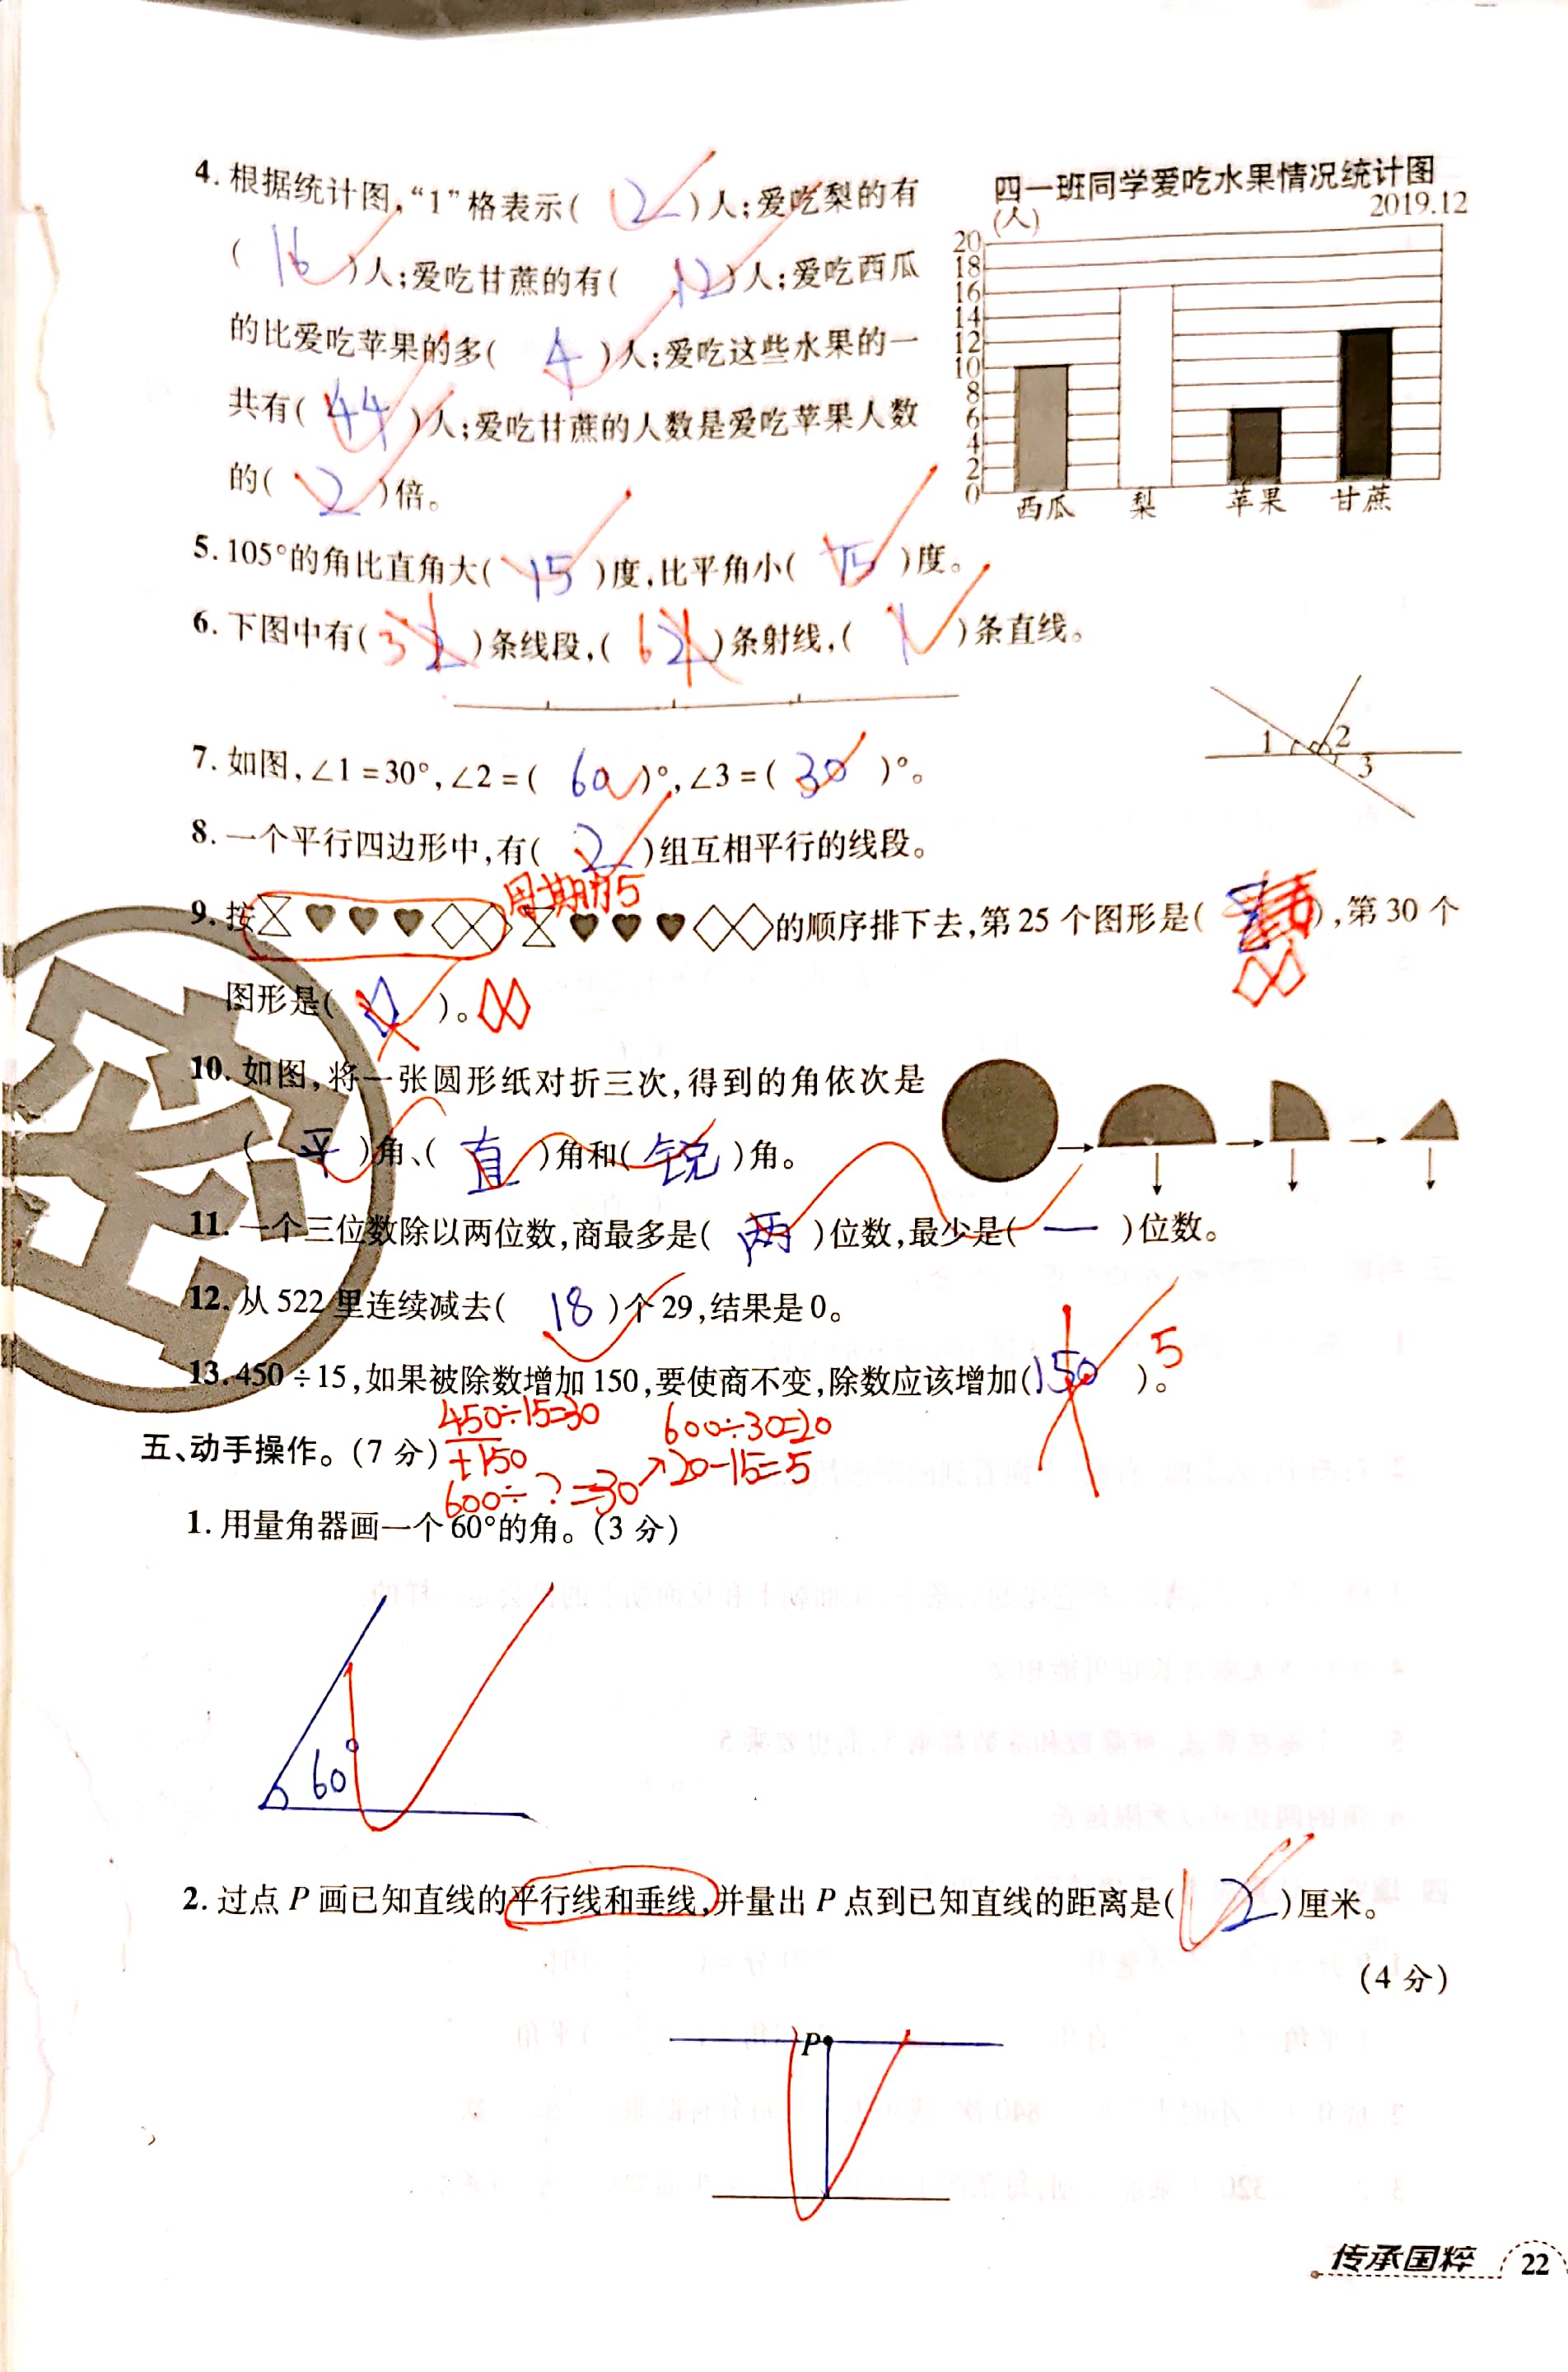 4. 根据统计图,“1”格表示( 2 )人;爱吃梨的有
( 16 )人;爱吃甘蔗的有( 12 )人;爱吃西瓜
的比爱吃苹果的多( 4 )人;爱吃这些水果的一
共有( 44 )人;爱吃甘蔗的人数是爱吃苹果人数
的( 2 )倍。
四一班同学爱吃水果情况统计图
(人) 2019.12
20
18
16
14
12
10
8
6
4
2
0
西瓜 梨 苹果 甘蔗
5. 105°的角比直角大( 15 )度,比平角小( 75 )度。
6. 下图中有( 3 2 )条线段,( 6 2 )条射线,( 1 )条直线。
7. 如图,∠1=30°,∠2=( 60 )°,∠3=( 30 )°。
1 2
3
8. 一个平行四边形中,有( 2 )组互相平行的线段。
周期为5
9. 按 的顺序排下去,第25个图形是( ),第30个
图形是( )。
10. 如图,将一张圆形纸对折三次,得到的角依次是
( 平 )角、( 直 )角和( 锐 )角。
11. 一个三位数除以两位数,商最多是( 两 )位数,最少是( 一 )位数。
12. 从522里连续减去( 18 )个29,结果是0。
13. 450÷15,如果被除数增加150,要使商不变,除数应该增加( 150 )。 5
450÷15=30 600÷30=20
+150 20-15=5
600÷?=30
五、动手操作。(7分)
1. 用量角器画一个60°的角。(3分)
60°
2. 过点P画已知直线的平行线和垂线,并量出P点到已知直线的距离是( 2 )厘米。
(4分)
P
传承国粹 22
密